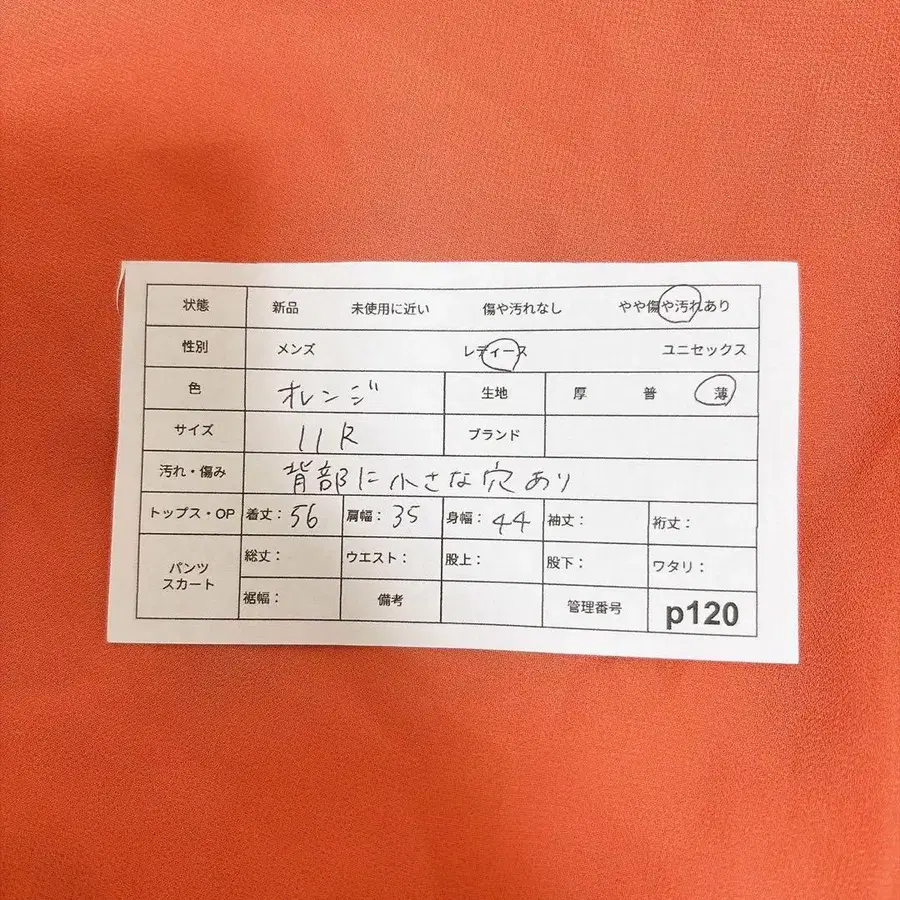 状態 新品 未使用に近い 傷や汚れなし やや傷や汚れあり
性別 メンズ レディース ユニセックス
色 オレンジ 生地 厚 普 薄
サイズ 11R ブランド
汚れ・傷み 背部に小さな穴あり
トップス・OP 着丈：56 肩幅：35 身幅：44 袖丈： 裄丈：
パンツ
スカート
総丈： ウエスト： 股上： 股下： ワタリ：
裾幅： 備考 管理番号 p120